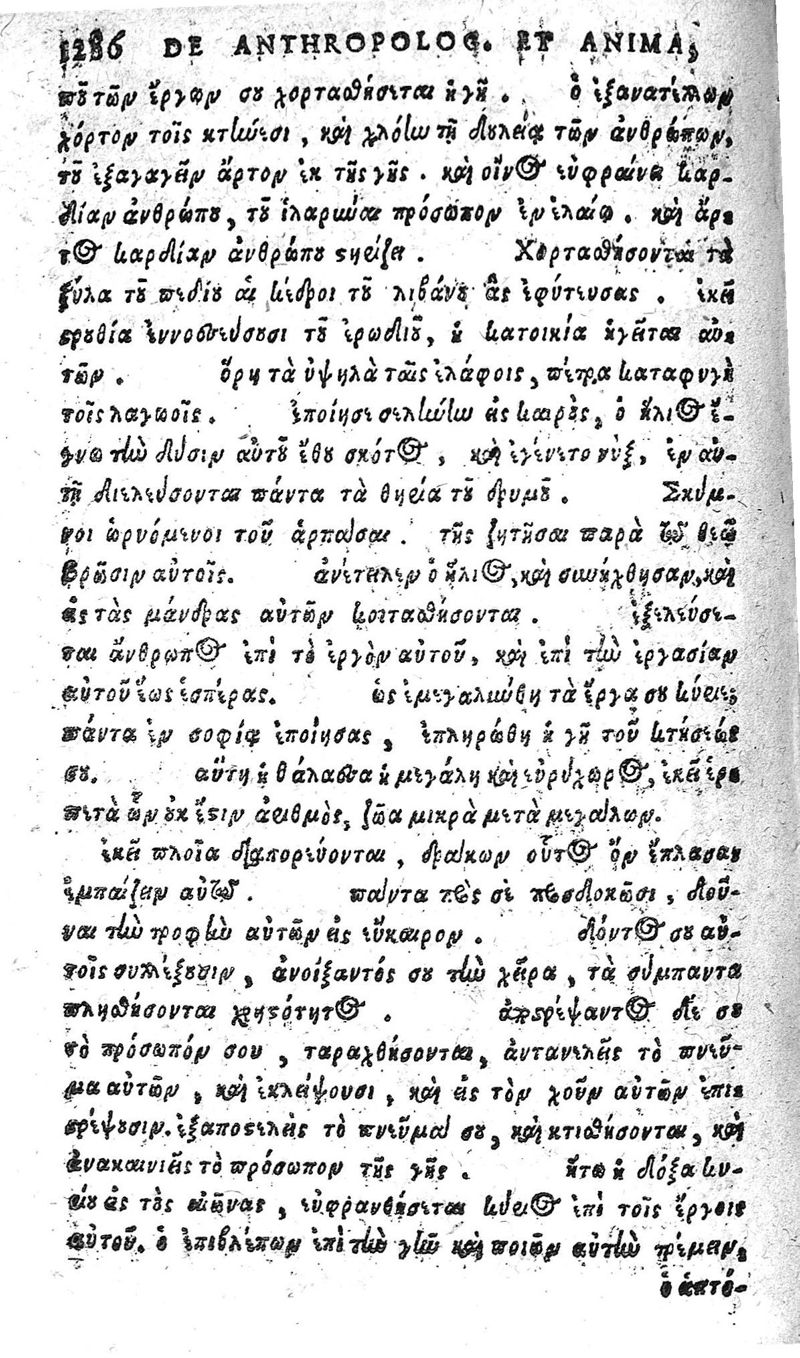 1286 DE ANTHROPOLOG. ET ANIMA,
ποῦ τῶν ἔργων σου χορτασθήσεται ἡ γῆ. ὁ ἐξανατέλλων
χόρτον τοῖς κτήνεσι, καὶ χλόην τῇ δουλείᾳ τῶν ἀνθρώπων,
τοῦ ἐξαγαγεῖν ἄρτον ἐκ τῆς γῆς. καὶ οἶνος εὐφραίνει καρ-
δίαν ἀνθρώπου, τοῦ ἱλαρῦναι πρόσωπον ἐν ἐλαίῳ. καὶ ἄρ-
τος καρδίαν ἀνθρώπου στηρίζει. Χορτασθήσονται τὰ
ξύλα τοῦ πεδίου αἱ κέδροι τοῦ λιβάνου ἃς ἐφύτευσας. ἐκεῖ
στρουθία ἐννοσσεύσουσι τοῦ ἐρωδιοῦ, ἡ κατοικία ἡγεῖται αὐ-
τῶν. ὄρη τὰ ὑψηλὰ ταῖς ἐλάφοις, πέτρα καταφυγὴ
τοῖς λαγωοῖς. ἐποίησε σελήνην εἰς καιρὲς, ὁ ἥλιος ἔ-
γνω τὴν δύσιν αὐτοῦ ἔθου σκότος, καὶ ἐγένετο νὺξ, ἐν αὐ-
τῇ διελεύσονται πάντα τὰ θηρία τοῦ δρυμοῦ. Σκύμ-
νοι ὠρυόμενοι τοῦ ἁρπάσαι. τῆς ζητῆσαι παρὰ τῷ θεῷ
βρῶσιν αὐτοῖς. ἀνέτειλεν ὁ ἥλιος, καὶ συνήχθησαν, καὶ
εἰς τὰς μάνδρας αὐτῶν κοιτασθήσονται. ἐξελεύσε-
ται ἄνθρωπος ἐπὶ τὸ ἐργὸν αὐτοῦ, καὶ ἐπὶ τὴν ἐργασίαν
αὐτοῦ ἕως ἑσπέρας. ὡς ἐμεγαλύνθη τὰ ἔργα σου κύριε,
πάντα ἐν σοφίᾳ ἐποίησας, ἐπληρώθη ἡ γῆ τοῦ κτήσεώς
σου. αὕτη ἡ θάλασσα ἡ μεγάλη καὶ εὐρύχωρος, ἐκεῖ ἑρ-
πετὰ ὧν οὐκ ἔστιν ἀριθμὸς, ζῶα μικρὰ μετὰ μεγάλων.
ἐκεῖ πλοῖα διαπορεύονται, δράκων οὗτος ὃν ἔπλασας
ἐμπαίζειν αὐτῷ. πάντα πρὸς σὲ προσδοκῶσι, δοῦ-
ναι τὴν τροφὴν αὐτῶν εἰς εὔκαιρον. δόντος σου αὐ-
τοῖς συλλέξουσιν, ἀνοίξαντός σου τὴν χεῖρα, τὰ σύμπαντα
πλησθήσονται χρηστότητος. ἀποστρέψαντος δέ σου
τὸ πρόσωπόν σου, ταραχθήσονται, ἀντανελεῖς τὸ πνεῦ-
μα αὐτῶν, καὶ ἐκλείψουσι, καὶ εἰς τὸν χοῦν αὐτῶν ἐπι-
στρέψουσιν. ἐξαποστελεῖς τὸ πνεῦμά σου, καὶ κτισθήσονται, καὶ
ἀνακαινιεῖς τὸ πρόσωπον τῆς γῆς. ἤτω ἡ δόξα κυ-
ρίου εἰς τοὺς αἰῶνας, εὐφρανθήσεται κύριος ἐπὶ τοῖς ἔργοις
αὐτοῦ. ὁ ἐπιβλέπων ἐπὶ τὴν γῆν καὶ ποιῶν αὐτὴν τρέμειν,
ὁ ἁπτό-